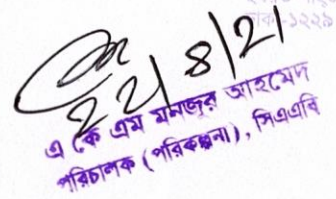 ঢাকা-১২২৯
22/8/21
এ কে এম মনজুর আহমেদ
পরিচালক (পরিকল্পনা), সিএএবি